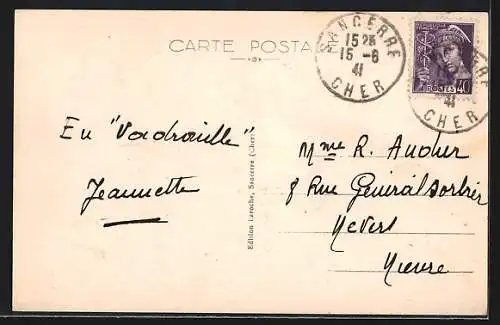 CARTE POSTALE
SANCERRE
15 25
15 -6
41
CHER
POSTES 40
41
CHER
En "Vadrouille"
Jeannette
Mme R. Audher
8 Rue Général Sorbier
Nevers
Nièvre
Edition Laroche, Sancerre (Cher)